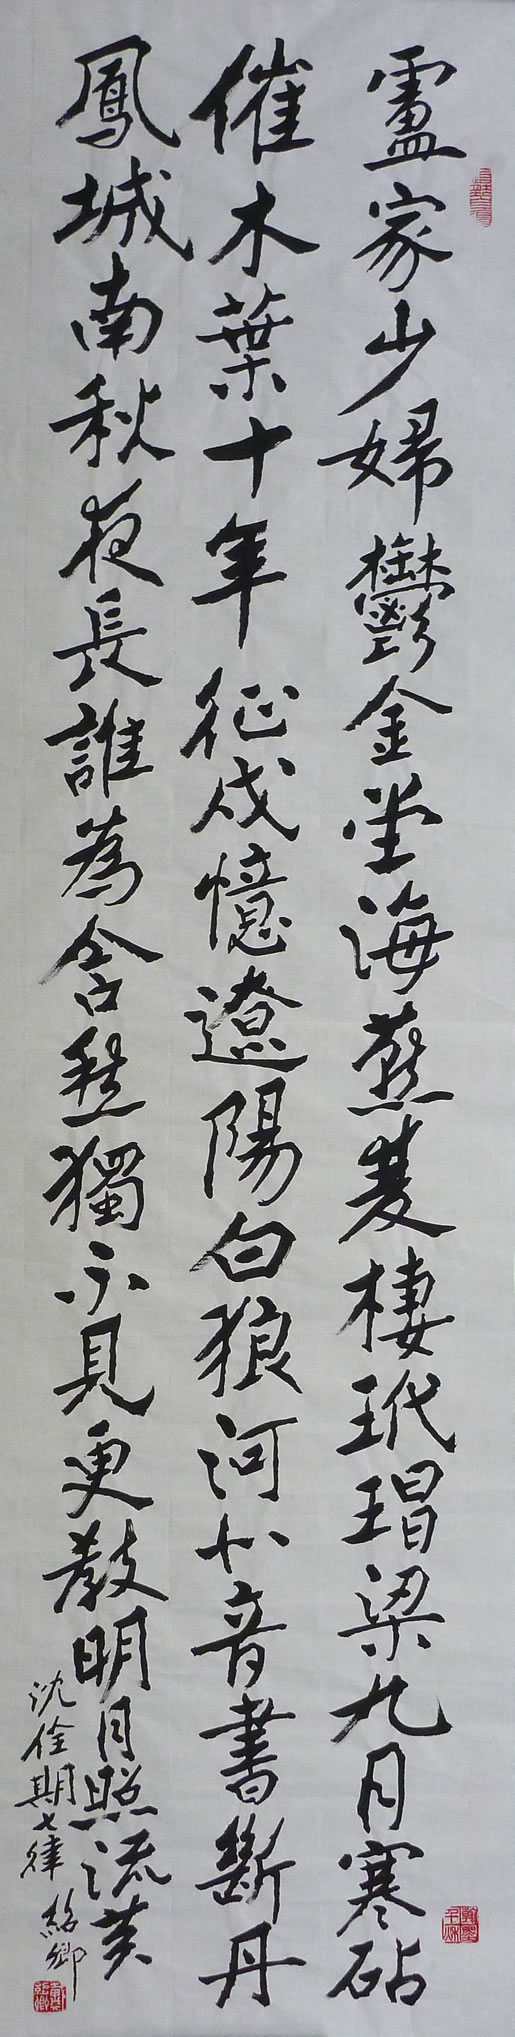 盧家少婦鬱金堂海燕雙棲玳瑁梁九月寒砧
催木葉十年征戍憶遼陽白狼河北音書斷丹
鳳城南秋夜長誰為含愁獨不見更教明月照流黃
沈佺期七律 紹卿